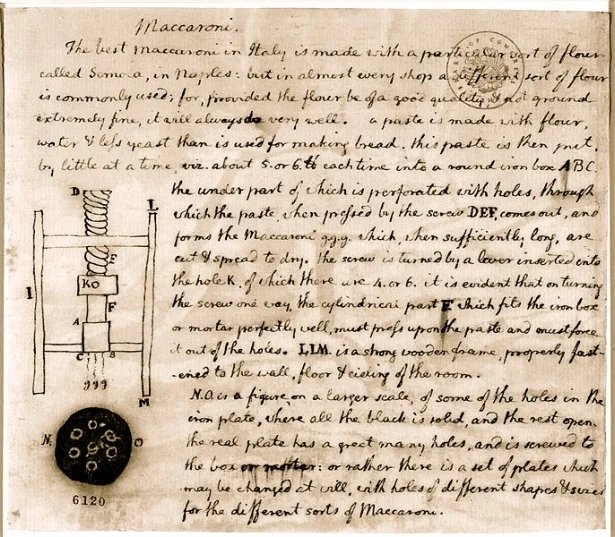 Maccaroni.
The best maccaroni in Italy is made with a particular sort of flour
called Semola, in Naples: but in almost every shop a different sort of flour
is commonly used; for, provided the flour be of a good quality, & not ground
extremely fine, it will always do very well. a paste is made with flour,
water & less yeast than is used for making bread. this paste is then put,
by little at a time, viz. about 5. or 6. ℔ each time into a round iron box ABC.
the under part of which is perforated with holes, through
which the paste, when pressed by the screw DEF, comes out, and
forms the Maccaroni g.g.g. which, when sufficiently long, are
cut & spread to dry. the screw is turned by a lever inserted into
the hole K, of which there are 4. or 6. it is evident that on turning
the screw one way, the cylindrical part F. which fits the iron box
or mortar perfectly well, must press upon the paste and must force
it out of the holes. LLM. is a strong wooden frame, properly fast-
-ened to the wall, floor & cieling of the room.
N.O. is a figure, on a larger scale, of some of the holes in the
iron plate, where all the black is solid, and the rest open.
the real plate has a great many holes, and is screwed to
the box or mortar: or rather there is a set of plates which
may be changed at will, with holes of different shapes & sizes
for the different sorts of Maccaroni.
D
L
E
KO
I
F
A
C
B
ggg
M
N.
O
6120